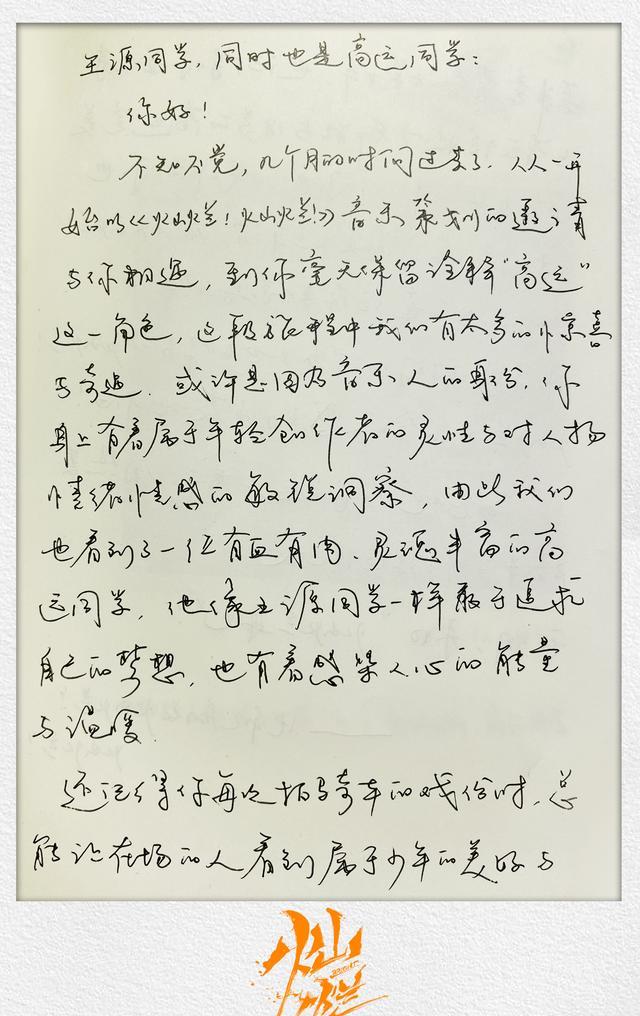 王源同学,同时也是高远同学:
你好!
不知不觉,九个月的时间过去了.从一开
始的《火山灿烂!火山灿烂!》音乐策划的邀请
与你相遇,到你毫无保留诠释"高远"
这一角色,这段旅程中我们有太多的惊喜
与奇遇.或许是因为音乐人的身份,你
身上有着属于年轻创作者的灵性与对人物
情绪情感的敏锐洞察,由此我们
也看到了一位有血有肉、灵魂丰富的高
远同学,他像王源同学一样敢于追求
自己的梦想,也有着感染人心的能量
与温暖.
还记得你每次拍骑车的戏份时,总
能让在场的人看到属于少年的美好与